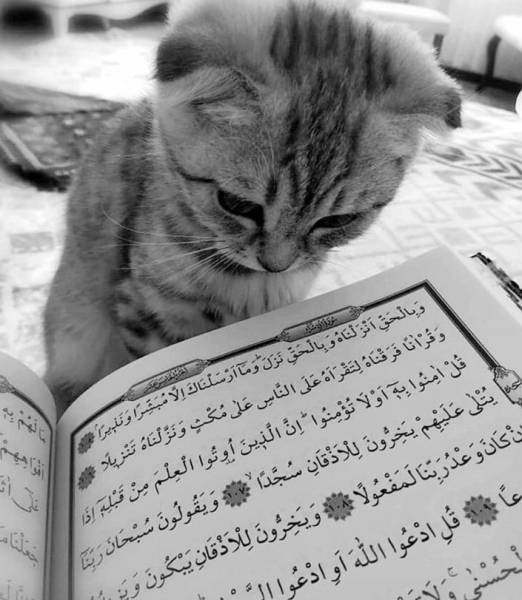 وَبِالْحَقِّ اَنْزَلْنَاهُ وَبِالْحَقِّ نَزَلَ وَمَٓا اَرْسَلْنَاكَ اِلَّا مُبَشِّراً وَنَذ۪يراً
وَقُرْاٰناً فَرَقْنَاهُ لِتَقْرَاَهُ عَلَى النَّاسِ عَلٰى مُكْثٍ وَنَزَّلْنَاهُ تَنْز۪يلاً
قُلْ اٰمِنُوا بِه۪ٓ اَوْ لَا تُؤْمِنُوا اِنَّ الَّذ۪ينَ اُو۫تُوا الْعِلْمَ مِنْ قَبْلِه۪ٓ اِذَا
يُتْلٰى عَلَيْهِمْ يَخِرُّونَ لِلْاَذْقَانِ سُجَّداً ١٠٧ وَيَقُولُونَ سُبْحَانَ رَبِّنَٓا
اِنْ كَانَ وَعْدُ رَبِّنَا لَمَفْعُولاً ١٠٨ وَيَخِرُّونَ لِلْاَذْقَانِ يَبْكُونَ
١٠٩ قُلِ ادْعُوا اللّٰهَ اَوِ ادْعُوا
الْحُسْنٰى